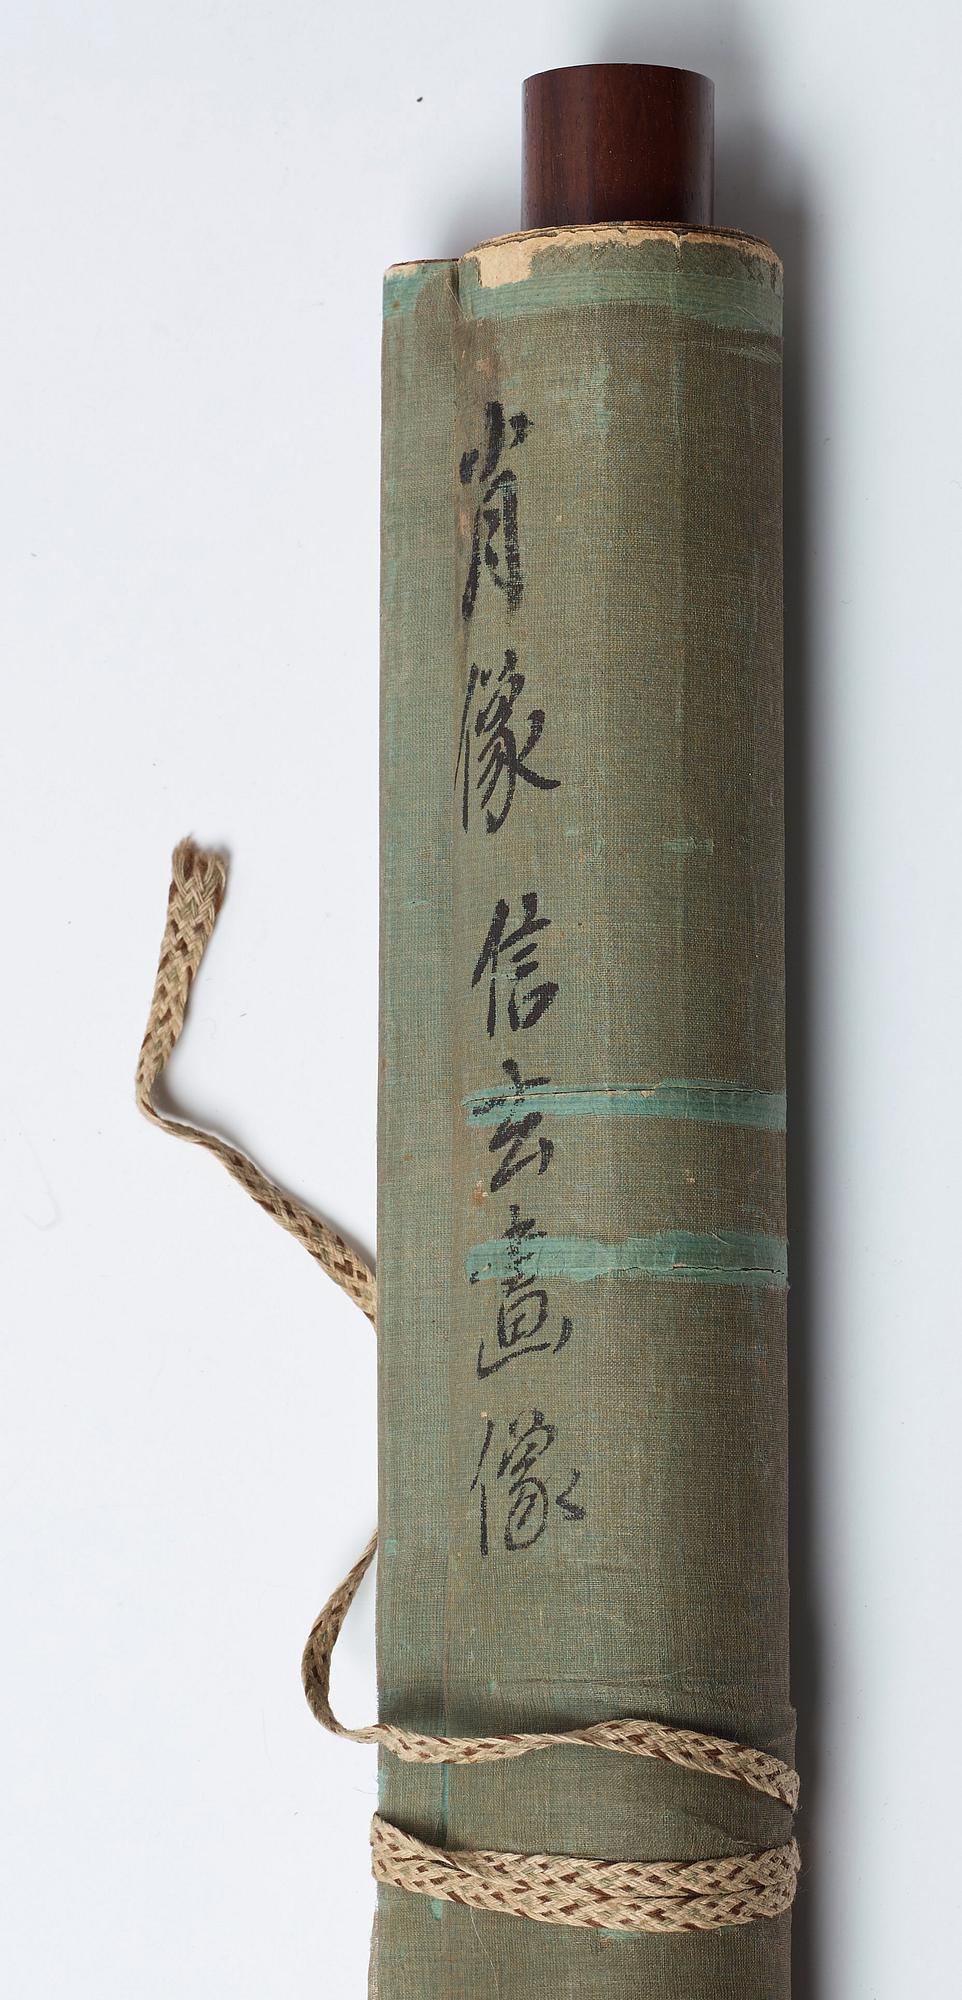 肖像 信玄畫像